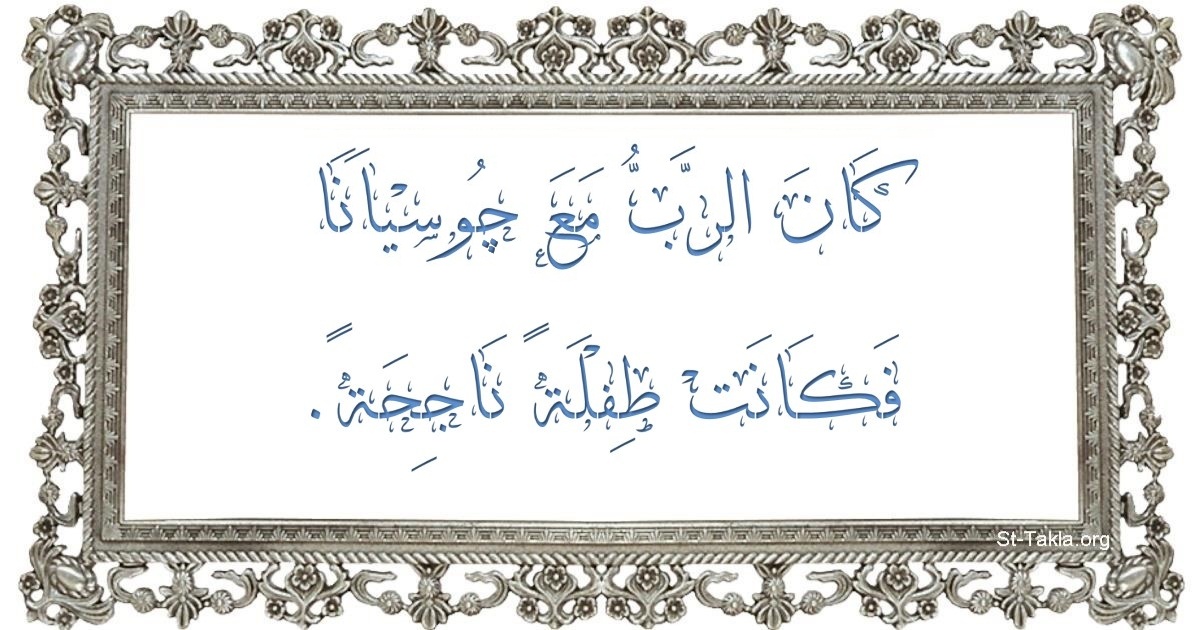 كَانَ الرَّبُّ مَعَ چُوسْيَانَا
فَكَانَت طِفْلَةً نَاجِحَةً.
St-Takla.org